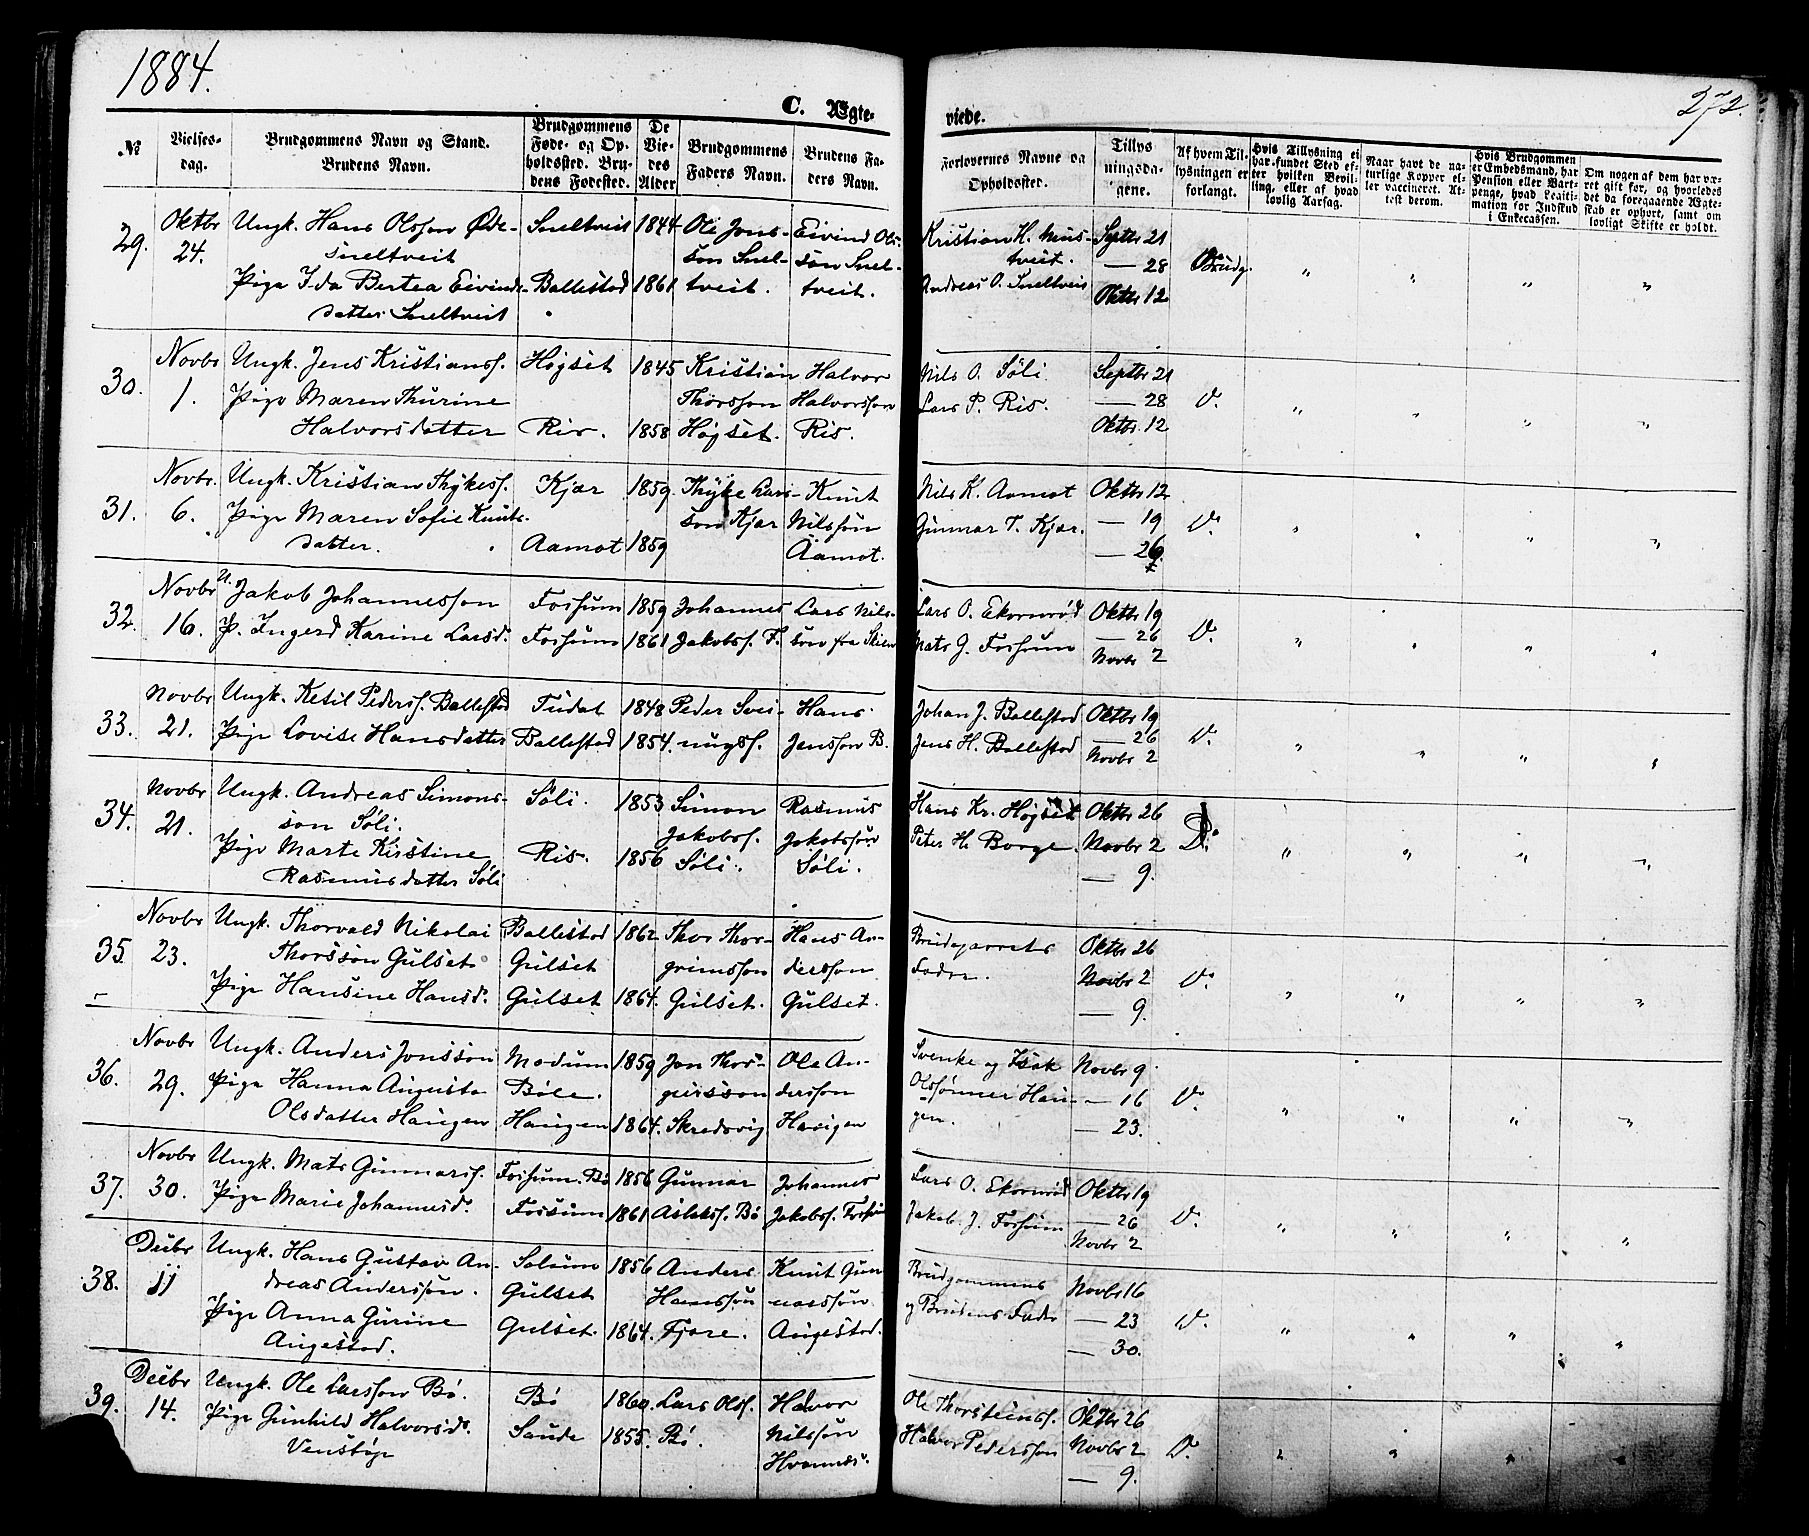 1884.
272.
C. Ægte-
viede.
№
Vielses-
dag.
Brudgommens Navn og Stand.
Brudens Navn.
Brudgommens
Føde- og Op-
holdssted. Bru-
dens Fødested.
De
Vie-
des
Alder
Brudgommens
Faders Navn.
Brudens Fa-
ders Navn.
Forlovernes Navne og
Opholdssted.
Tillys
ningsda-
gene.
Af hvem Til-
lysningen er
forlangt.
Hvis Tillysning ei
har fundet Sted ef-
ter hvilken Bevil-
ling, eller af hvad
lovlig Aarsag.
Naar havt de na-
turlige Kopper el-
ler vaccineret. At-
test derom.
Hvis Brudgommen
er Embedsmand, har
Pension eller Vart-
penge, hvad Legiti-
mation for Indskud
i Enkecassen.
Om nogen af dem har væ-
ret gift før, og hvorledes
det da foregaaende Ægte-
skab er ophørt, samt om
lovligt Skifte er holdt.
29. Oktbr 24.
Ungk. Hans Olsson Øde-
sneltveit
Pige Ida Bertea Eivinds-
datter Sneltveit
Sneltveit 1844
Ballestad 1861
Ole Jons-
son Snel-
tveit.
Eivind Ols-
søn Snel-
tveit.
Kristian H. Mus-
tveit.
Andreas O. Sneltveit
Septbr 21
— 28
Oktbr 12
Brudg. " " " "
30. Novbr 1.
Ungk. Jens Kristianss.
Pige Maren Thurine
Halvorsdatter
Høgset 1845
Ris. 1858
Kristian
Thorsson
Høgset.
Halvor
Halvorsson
Ris.
Nils O. Søli
Lars P. Ris.
Septbr 21
— 28
Oktbr. 12
D. " " " "
31. Novbr. 6.
Ungk. Kristian Thykess.
Pige Maren Sofie Knuts-
datter.
Kjær 1859
Aamot 1859
Thyke Lars-
son Kjær
Knut
Nilssøn
Aamot.
Nils K. Aamot
Gunnar T. Kjær.
Oktbr 12
— 19
— 26
D. " " " "
32. Novbr 16.
U. Jakob Johannesson
P. Ingerd Karine Larsd.
Fossum 1859
Fossum 1861
Johannes
Jakobss. F.
Lars Nils-
søn fra Skien
Lars O. Ekornrød
Mats G. Fossum
Oktbr 19
— 26
Novbr 2
D. " " " "
33. Novbr 21.
Ungk. Ketil Pederss. Ballestad
Pige Lovise Hansdatter
Tudal 1848
Ballestad 1854.
Peder Svei-
nugss.
Hans
Jensson B.
Johan J. Ballestad
Jens H. Ballestad
Oktbr 19
— 26
Novbr 2
D. " " " "
34. Novbr 21.
Ungk. Andreas Simons-
son Søli.
Pige Marte Kirstine
Rasmusdatter Søli
Søli. 1853
Ris. 1856
Simon
Jakobss.
Søli.
Rasmus
Jakobssøn
Søli.
Hans Kr. Høgset
Peter H. Borge.
Oktbr 26
Novbr 2
— 9.
D. " " " "
35. Novbr 23.
Ungk. Thorvald Nikolai
Thorssøn Gulset
Pige Hansine Hansd.
Ballestad 1862
Gulset
Gulset 1864.
Thor Thor-
grimsson
Gulset.
Hans An-
dersson
Gulset.
Brudeparrets
Fædre.
Oktbr 26
Novbr 2
— 9.
D. " " " "
36. Novbr 29.
Ungk. Anders Jonsson
Pige Hanna Augusta
Olsdatter Haugen
Modum 1859
Bøle.
Haugen 1864.
Jon Thor-
geirsson
Skredsvig
Ole An-
dersson
Haugen
Svenke og Isak
Olssønner Hau-
gen.
Novbr 9
— 16
— 23.
D. " " " "
37. Novbr 30.
Ungk. Mats Gunnarss.
Pige Marie Johannesd.
Fossum. Bø 1856
Fossum 1861
Gunnar
Aslakss. Bø
Johannes
Jakobss. Fossum
Lars O. Ekornrød
Jakob J. Fossum
Oktbr 19
— 26
Novbr 2
D. " " " "
38. Decbr 11
Ungk. Hans Gustav An-
dreas Anderssøn.
Pige Anna Gurine
Augestad.
Solum 1856
Gulset
Gulset. 1864.
Anders
Hanssøn
Fjære.
Knut Gun-
narssøn
Augestad.
Brudgommens
og Brudens Fader
Novbr 16
— 23
— 30.
D. " " " "
39. Decbr 14.
Ungk. Ole Larsson Bø.
Pige Gunhild Halvorsd.
Venstøp
Bø 1860.
Saude 1855.
Lars Olss.
Bø.
Halvor
Nilssøn
Ole Thorsteinss.
Halvor Pedersson
Oktbr 26
Novbr 2
— 9.
D. " " " "